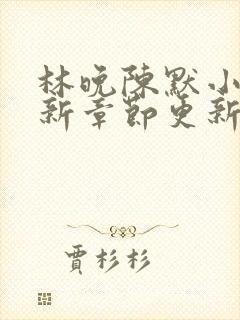 林晚陈默小
新章節更新
賈杉杉